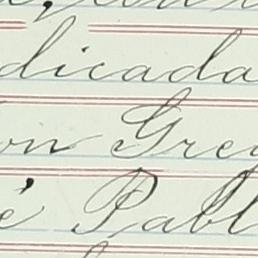 dicada
on Greg
é Pabl